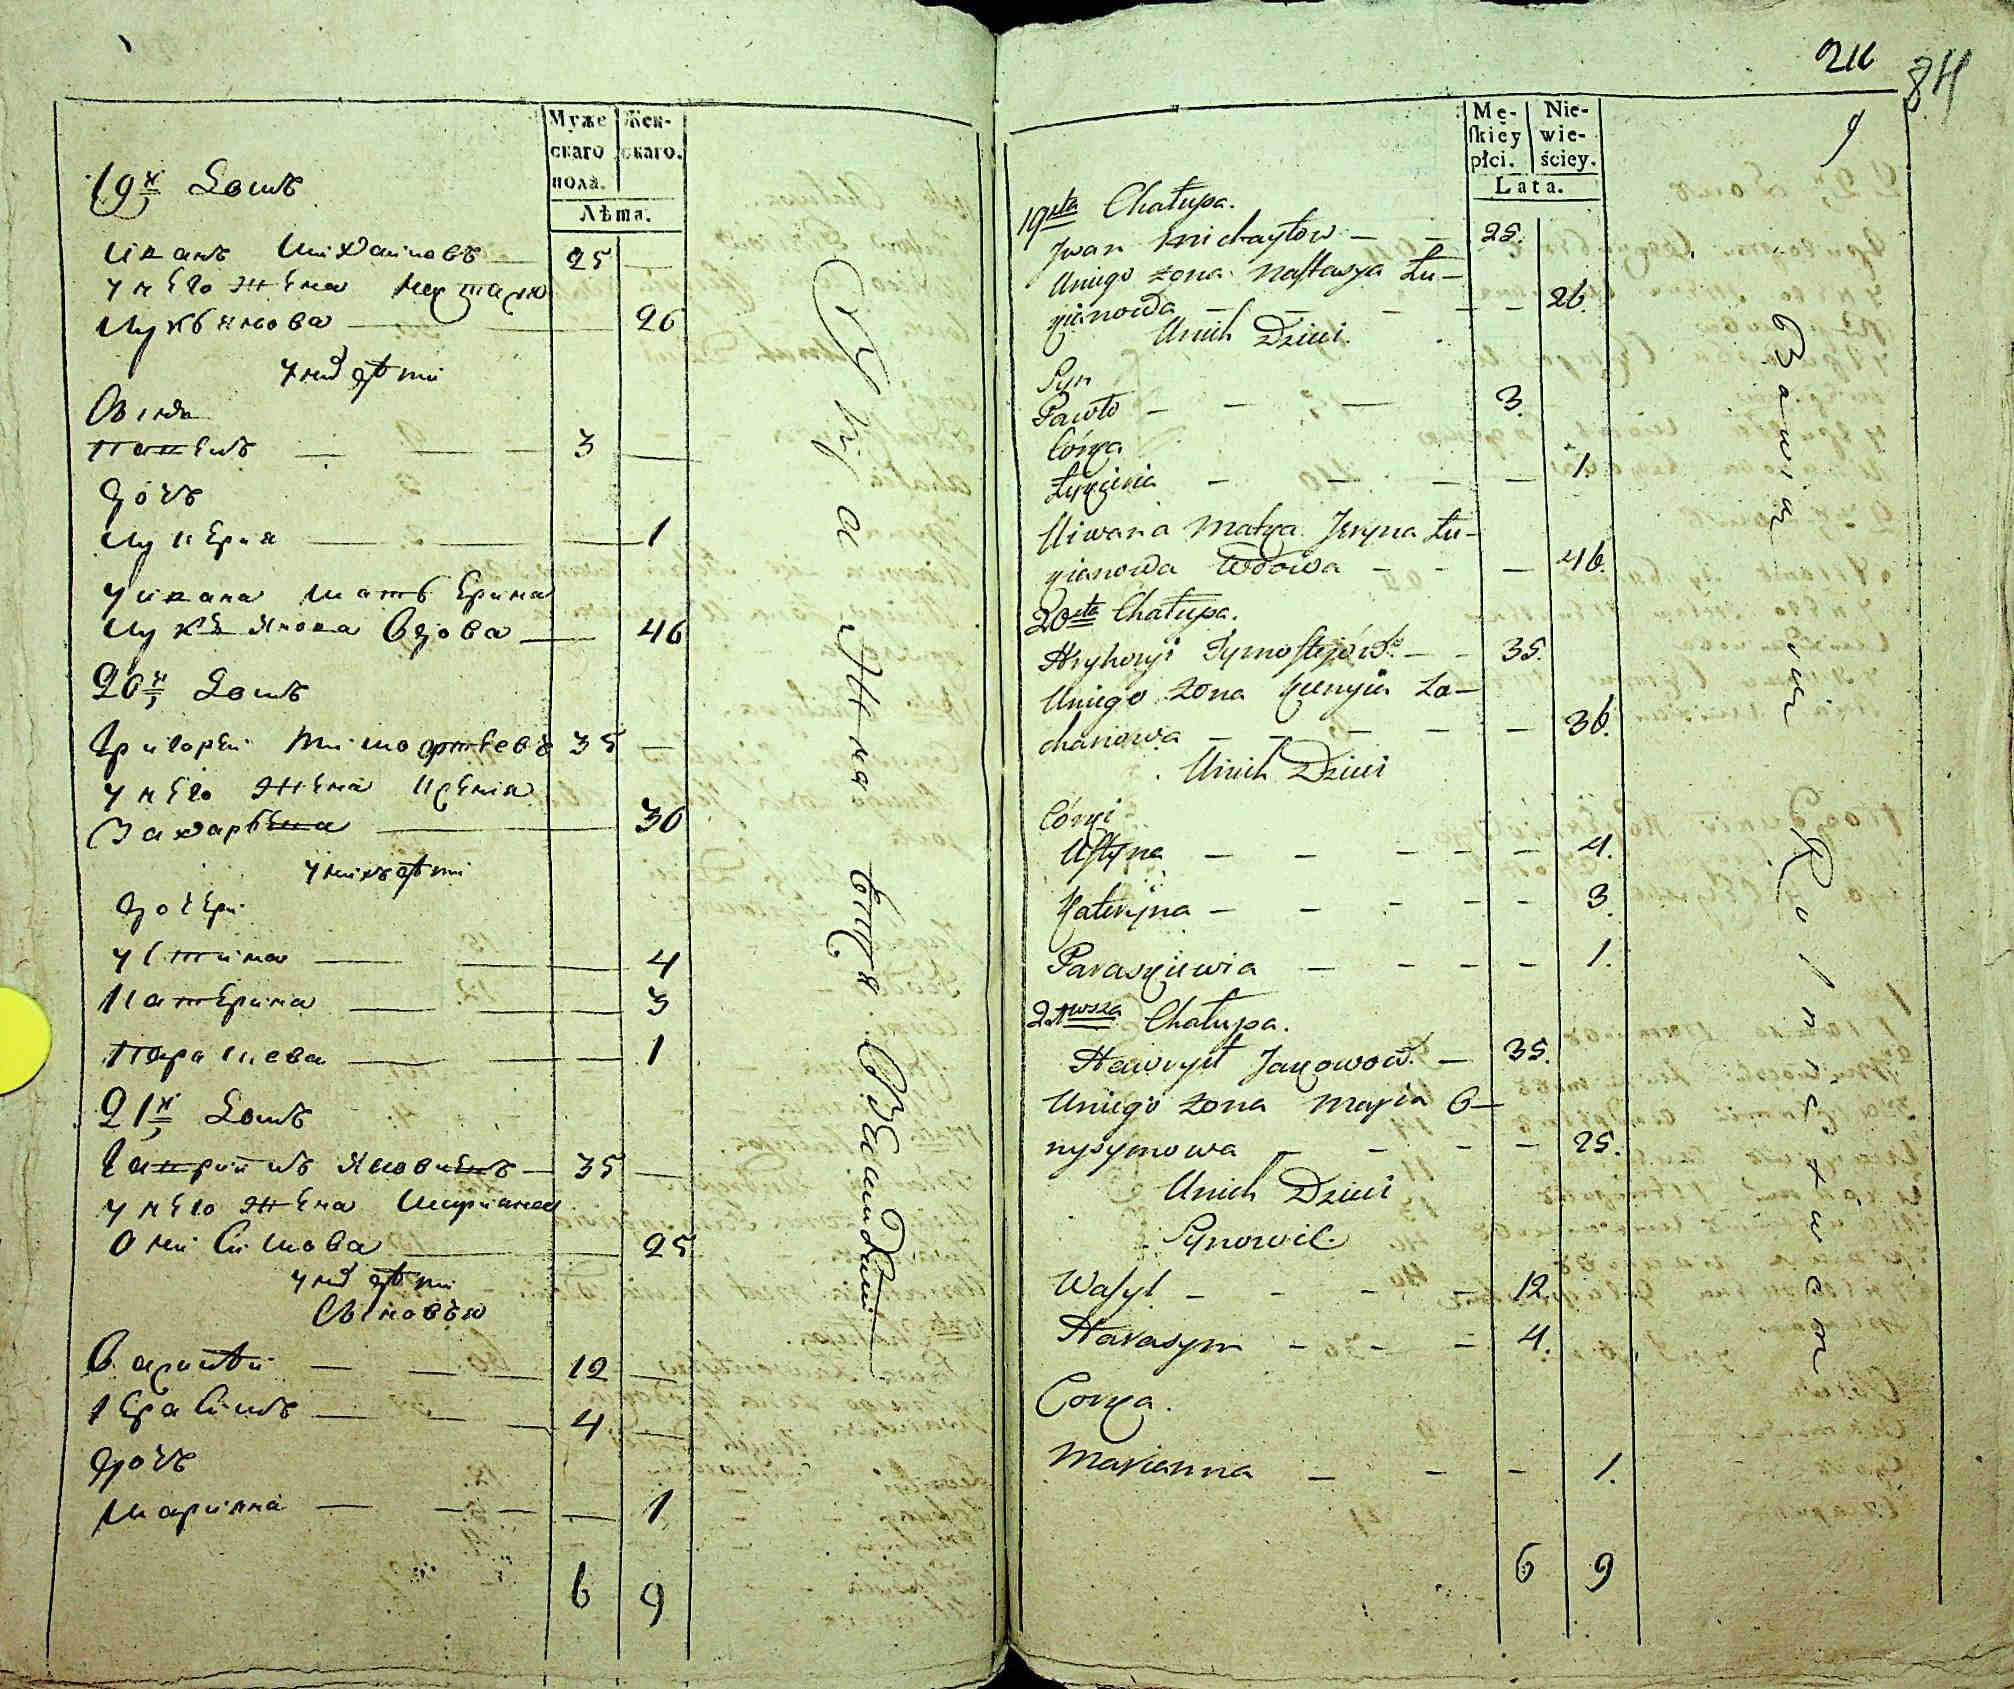 Муже
скаго
пола.
Жен-
скаго.
Лѣта.
19й Домъ
Иванъ Михайловъ — 25 —
у него жена Настасия
Лукьянова — 26
у них дѣти
Сынъ
Павелъ — 3 —
Дочь
Лукерия — 1
у Ивана мать Ерина
Лукьянова Вдова — 46
20й Домъ
Григорей Тимофѣевъ 35 —
у него жена Ксения
Захарьева — 36
у нихъ дѣти
Дочери
Устина — 4
Катерина — 3
Параскева — 1
21й Домъ
Гаврийлъ Яковлевъ — 35 —
у него жена Мариана
Онисимова — 25
у них дѣти
Сыновья
Василей — 12 —
Герасимъ — 4 —
Дочь
Мариана — 1
6 9
211
84
Mę-
skiey
płci.
Nie-
wie-
ściey.
Lata.
19sta Chałupa.
Jwan Michayłow — 25.
Uniego żona Nastasya Łu-
kianowa — 26.
Unich Dzieci
Syn
Pawło — 3.
Córka
Łukieria — 1.
Uiwana Matka Jeryna Łu-
kianowa Wdowa — 46.
20sta Chałupa.
Hryhoryi Tymofiejów — 35.
Uniego żona Xienyia Za-
charowa — 36.
Unich Dzieci
Córki
Ustyna — 4.
Kateryna — 3.
Paraskiewia — 1.
21wsza Chałupa.
Hawrył Jakowow — 35.
Uniego żona Maryia O-
nysymowa — 25.
Unich Dzieci
Synowie.
Wasyl — 12.
Harasym — 4.
Corka.
Marianna — 1.
6 9